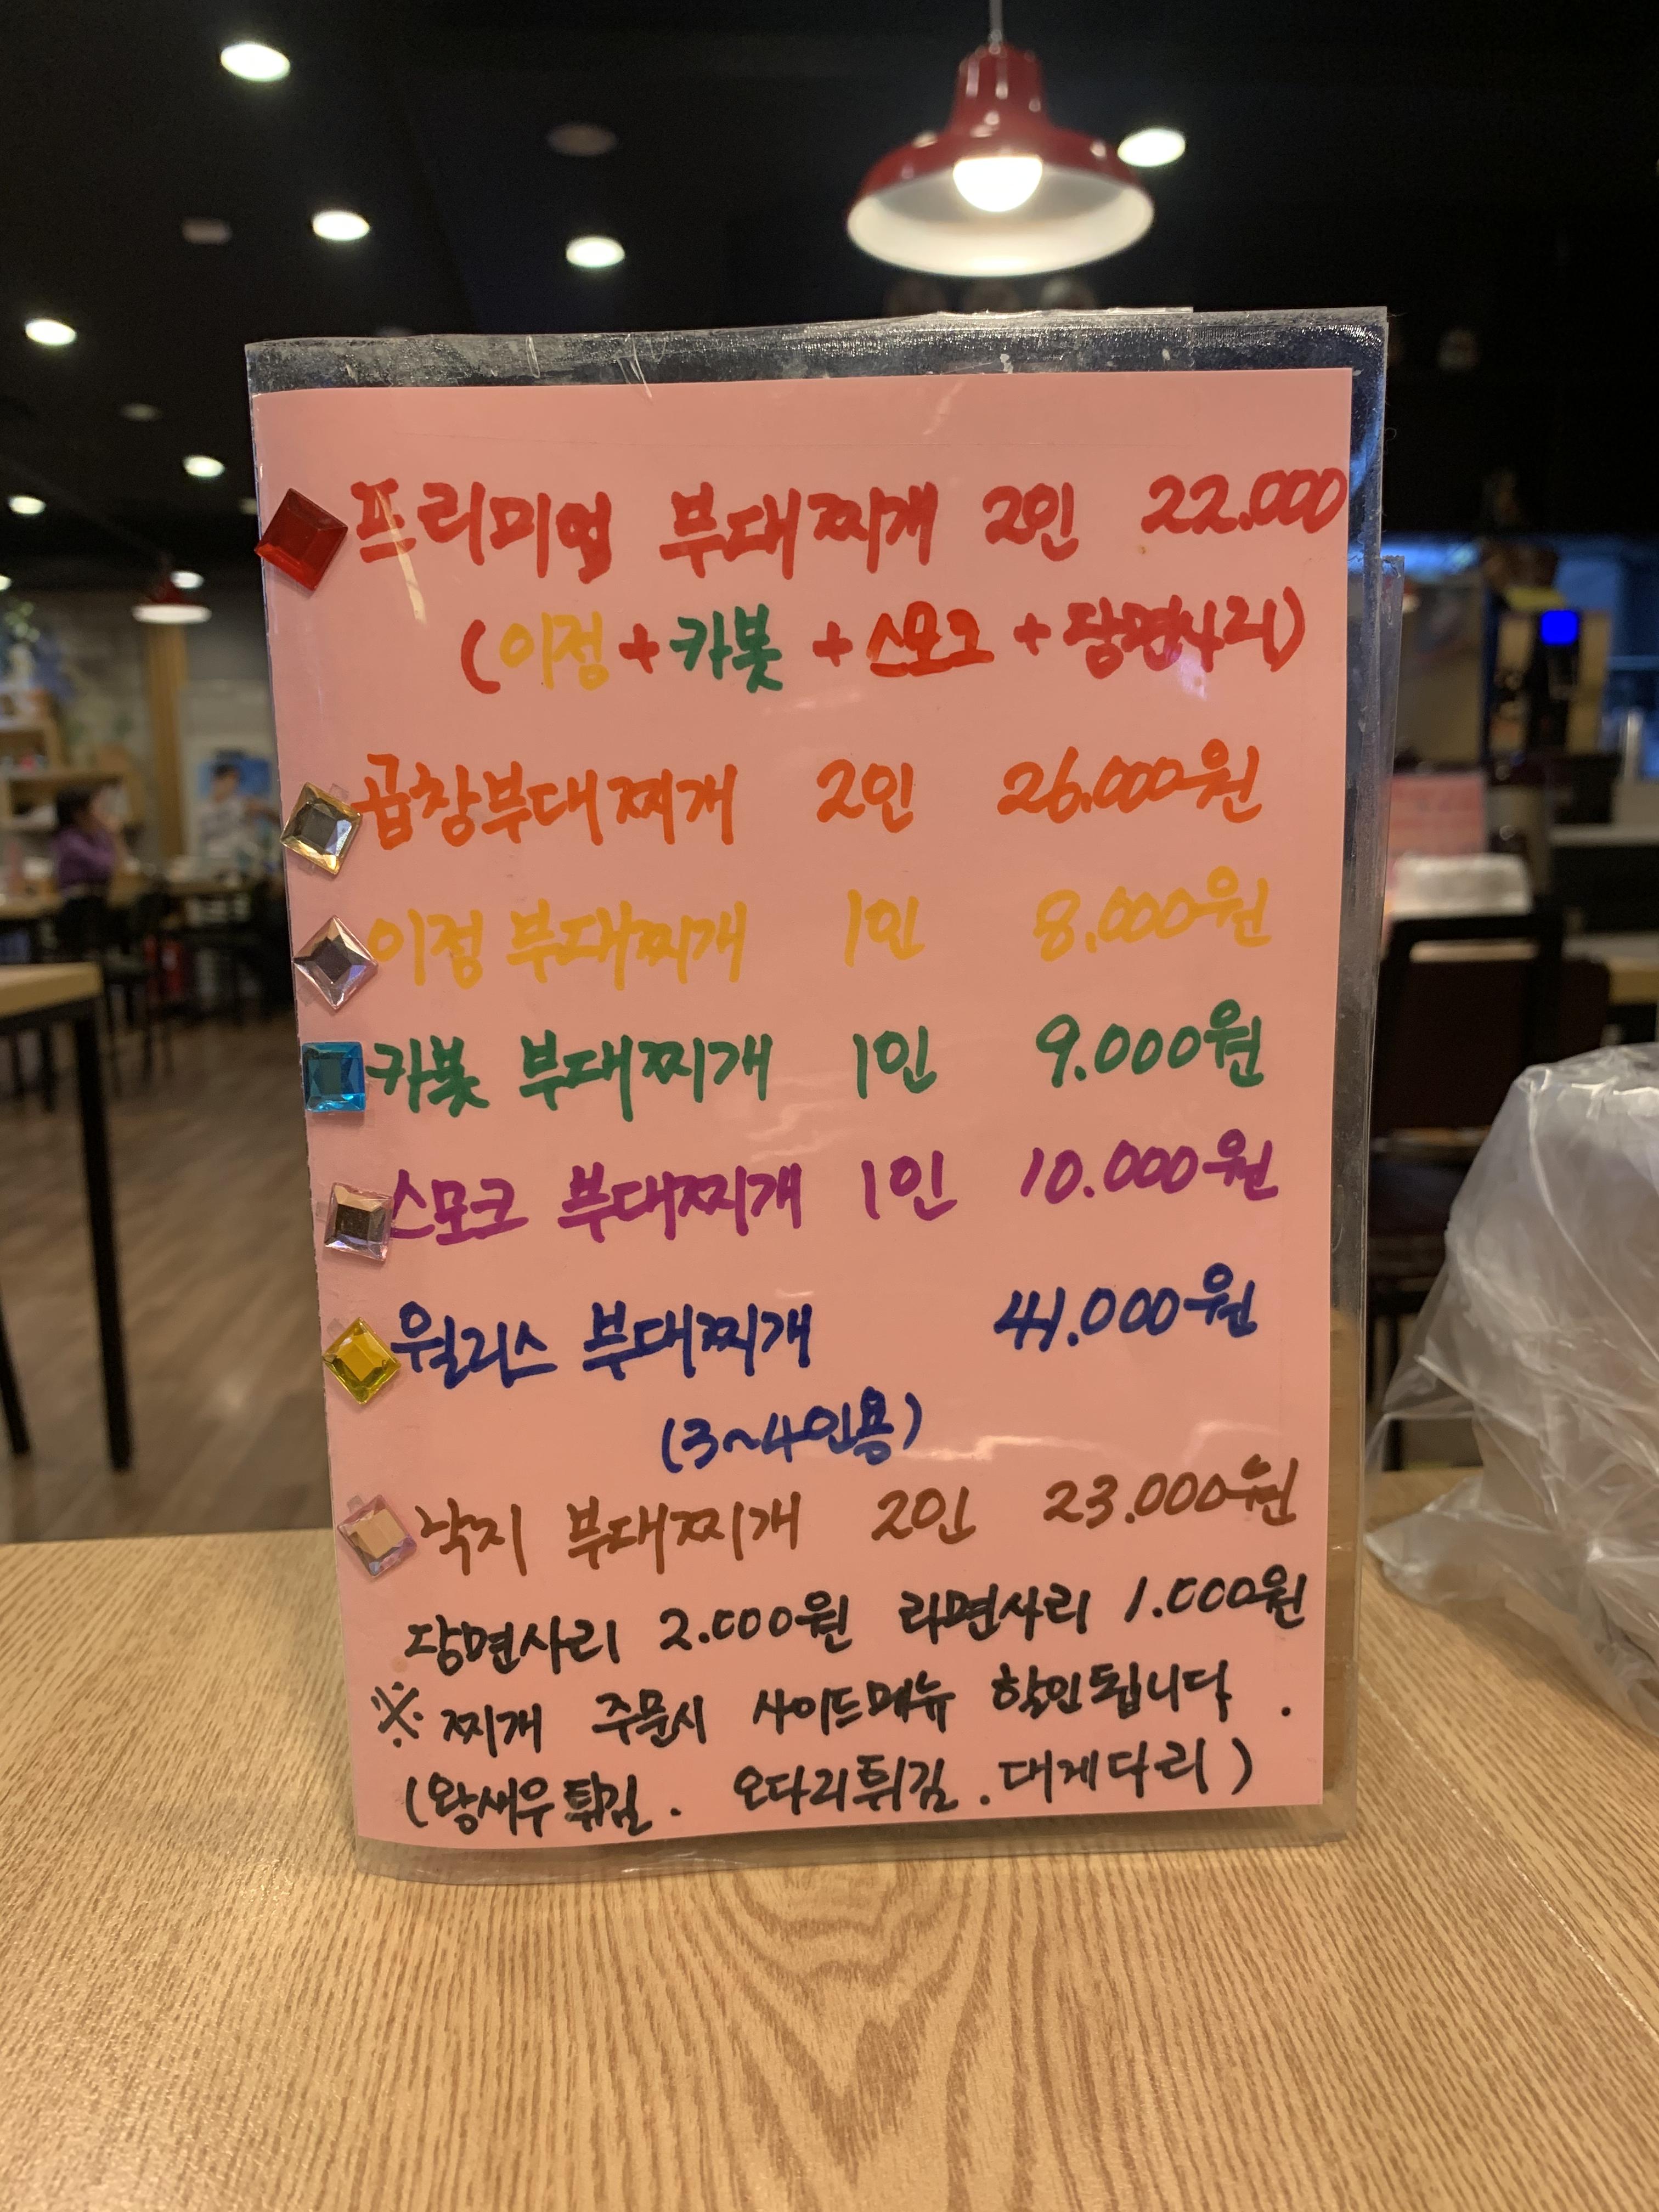 프리미엄 부대찌개 2인 22.000
(이정+카봇+스모크+당면사리)
곱창부대찌개 2인 26.000원
이정 부대찌개 1인 8.000원
카봇 부대찌개 1인 9.000원
스모크 부대찌개 1인 10.000원
월리스 부대찌개 41.000원
(3~4인용)
낙지 부대찌개 2인 23.000원
당면사리 2.000원 라면사리 1.000원
※ 찌개 주문시 사이드메뉴 할인됩니다.
(왕새우튀김. 오다리튀김. 대게다리)